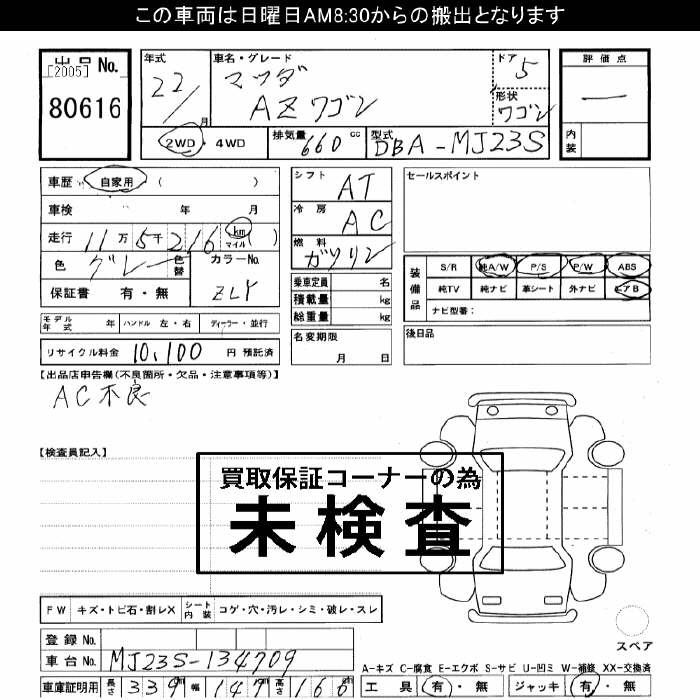 この車両は日曜日AM8:30からの搬出となります
出品 No.
[2005]
80616
年式 22/ 月
車名・グレード マツダ AZワゴン
ドア 5
形状 ワゴン
評価点 —
内装
2WD・4WD
排気量 660 cc
型式 DBA-MJ23S
車歴 自家用 ( )
車検 年 月
走行 11万5千216 km マイル ( )
色 グレー 色替
カラーNo. ZLY
保証書 有・無
シフト AT
冷房 AC
燃料 ガソリン
乗車定員 名
積載量 kg
総重量 kg
セールスポイント
装備品
S/R 純A/W P/S P/W ABS
純TV 純ナビ 革シート 外ナビ エアB
ナビ型番:
モデル年式 年 ハンドル 左・右 ディーラー・並行
リサイクル料金 10,100 円 預託済
名変期限 月 日
後日品
【出品店申告欄(不良箇所・欠品・注意事項等)】
AC不良
【検査員記入】
買取保証コーナーの為
未検査
FW キズ・トビ石・割レX
シート内装 コゲ・穴・汚レ・シミ・破レ・スレ
登録 No.
車台 No. MJ23S-134709
車庫証明用 長さ 339 幅 147 高さ 166
スペア
A-キズ C-腐食 E-エクボ S-サビ U-凹ミ W-補修 XX-交換済
工具 有・無 ジャッキ 有・無